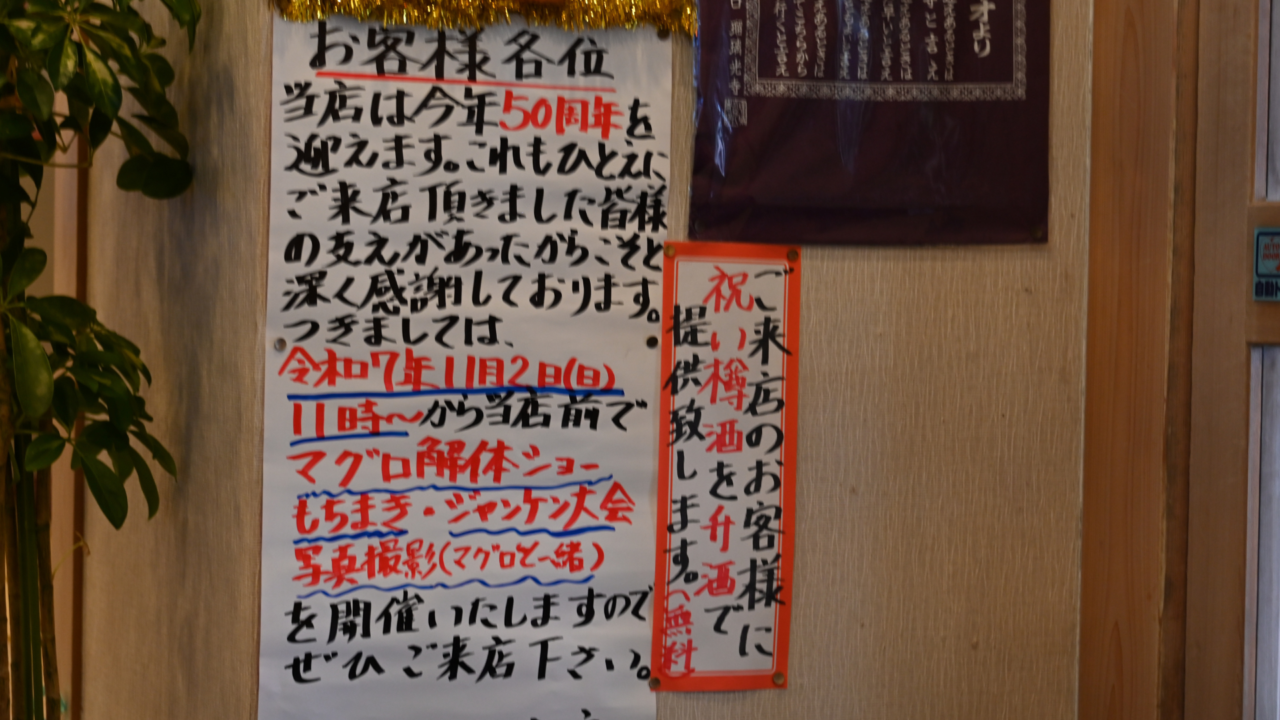 お客様各位
当店は今年50周年を
迎えます。これもひとえに
ご来店頂きました皆様
の支えがあったからこそと
深く感謝しております。
つきましては、
令和7年11月2日(日)
11時〜から当店前で
マグロ解体ショー
もちまき・ジャンケン大会
写真撮影(マグロと一緒)
を開催いたしますので
ぜひご来店下さい。
ご来店のお客様に
祝い樽酒を升酒で
提供致します。(無料)